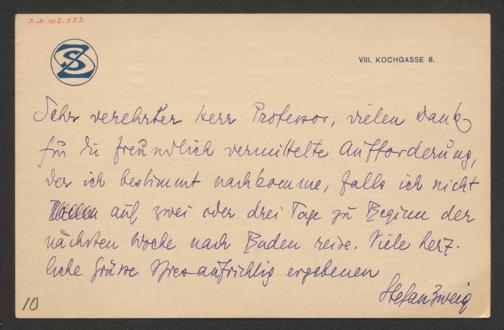 I.N. 102.522
SZ
VIII. KOCHGASSE 8.
Sehr verehrter Herr Professor, vielen Dank
für die freundlich vermittelte Aufforderung,
der ich bestimmt nachkomme, falls ich nicht
auf zwei oder drei Tage zu Beginn der
nächsten Woche nach Baden reise. Viele herz-
liche Grüsse Ihres aufrichtig ergebenen
Stefan Zweig
10